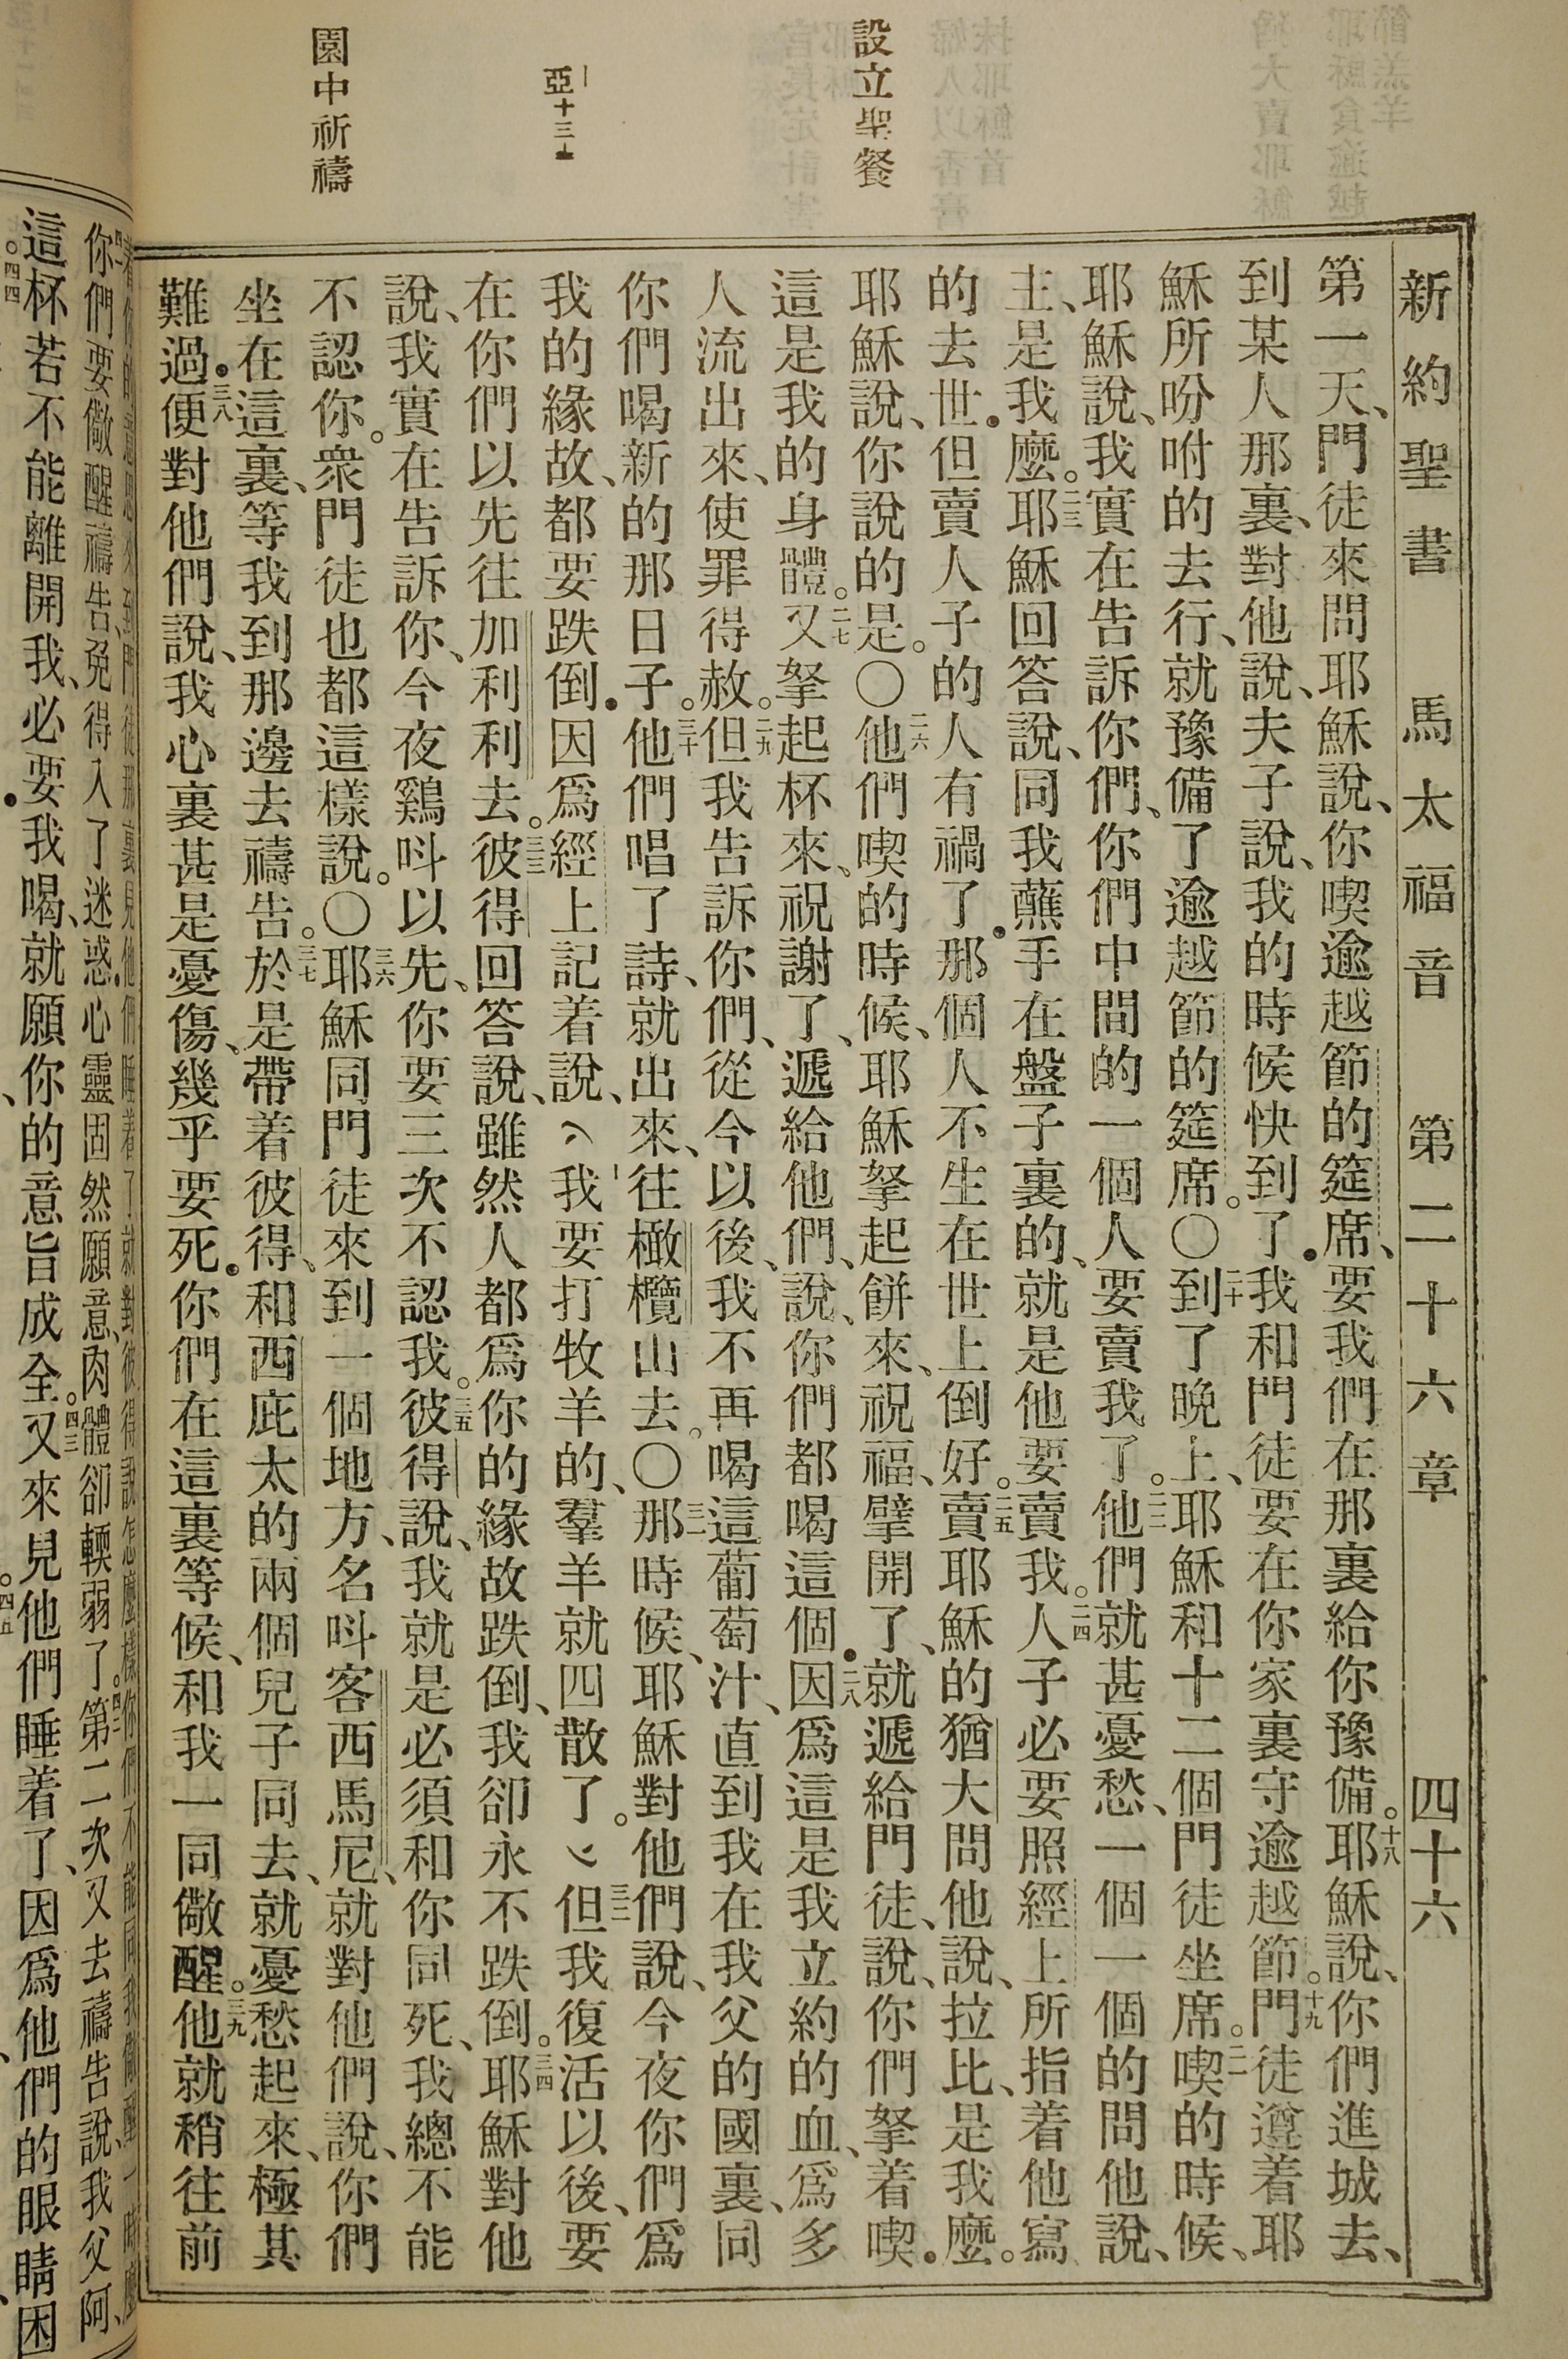 新約聖書 馬太福音 第二十六章 四十六
設立聖餐
一亞十三七
園中祈禱
第一天、門徒來問耶穌說、你喫逾越節的筵席、要我們在那裏給你豫備。十八耶穌說、你們進城去、
到某人那裏、對他說、夫子說、我的時候快到了．我和門徒要在你家裏守逾越節。十九門徒遵着耶
穌所吩咐的去行、就豫備了逾越節的筵席。〇二十到了晚上、耶穌和十二個門徒坐席。二一喫的時候、
耶穌說、我實在告訴你們、你們中間的一個人要賣我了。二二他們就甚憂愁、一個一個的問他說、
主、是我麽。二三耶穌回答說、同我蘸手在盤子裏的、就是他要賣我。二四人子必要照經上所指着他寫
的去世．但賣人子的人有禍了．那個人不生在世上倒好。二五賣耶穌的猶大問他說、拉比、是我麽。
耶穌說、你說的是。〇二六他們喫的時候、耶穌拏起餅來、祝福、擘開了、就遞給門徒、說、你們拏着喫．
這是我的身體。二七又拏起杯來、祝謝了、遞給他們、說、你們都喝這個．二八因爲這是我立約的血、爲多
人流出來、使罪得赦。二九但我告訴你們、從今以後、我不再喝這葡萄汁、直到我在我父的國裏、同
你們喝新的那日子。三十他們唱了詩、就出來、往橄欖山去。〇三一那時候、耶穌對他們說、今夜你們爲
我的緣故、都要跌倒．因爲經上記着說、一我要打牧羊的、羣羊就四散了。三二但我復活以後、要
在你們以先往加利利去。三三彼得回答說、雖然人都爲你的緣故跌倒、我卻永不跌倒。三四耶穌對他
說、我實在告訴你、今夜鷄呌以先、你要三次不認我。三五彼得說、我就是必須和你同死、我總不能
不認你。衆門徒也都這樣說。〇三六耶穌同門徒來到一個地方、名呌客西馬尼、就對他們說、你們
坐在這裏、等我到那邊去禱告。三七於是帶着彼得、和西庇太的兩個兒子同去、就憂愁起來、極其
難過．三八便對他們說、我心裏甚是憂傷、幾乎要死．你們在這裏等候、和我一同儆醒。三九他就稍往前
你們要儆醒禱告、免得入了迷惑．心靈固然願意、肉體卻輭弱了。四二第二次又去禱告說、我父阿、
這杯若不能離開我、必要我喝、就願你的意旨成全。四三又來見他們睡着了、因爲他們的眼睛困